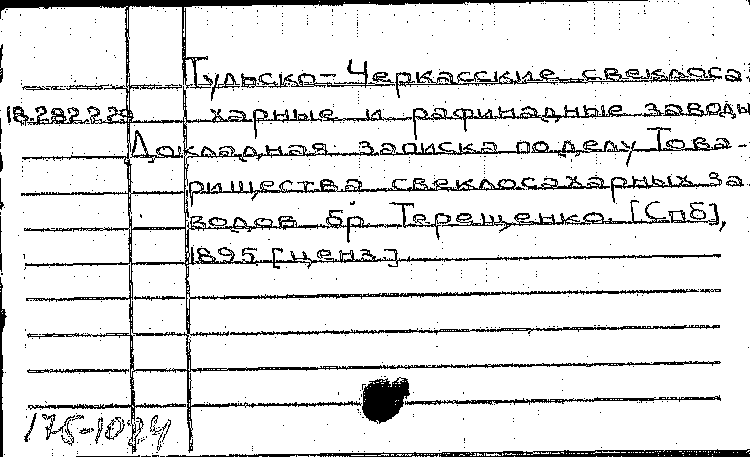 Тульско-Черкасские свеклоса-
18.282.2.29 харные и рафинадные заводы
Докладная записка по делу Това-
рищества свеклосахарных за-
водов бр. Терещенко. [Спб],
1895 [ценз.].
175-1024